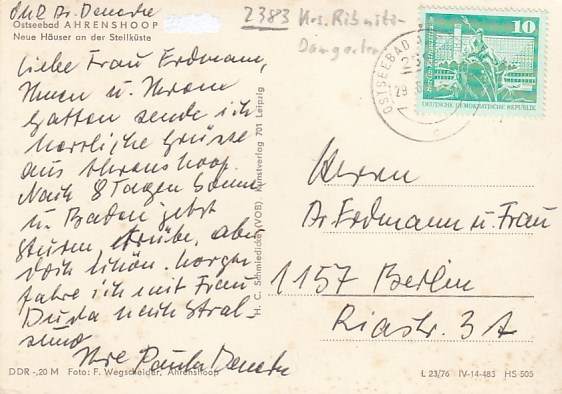 Ostseebad AHRENSHOOP
Neue Häuser an der Stellküste
2383 Krs. Ribnitz-
Damgarten
Liebe Frau Erdmann,
Ihnen u. Ihrem
Gatten sende ich
herrliche Grüße
aus Ahrenshoop.
Nach 8 Tagen Sonne
u. Baden jetzt
Sturm, trübe, aber
doch schön. Morgen
fahre ich mit Frau
Duda nach Stral-
sund
Ihre Paula
DDR -,20 M Foto: F. Wegscheider, Ahrenshoop
H. C. Schmiedicke (VOB) Kunstverlag 701 Leipzig
OSTSEEBAD
10
Berlin-Rathausstraße
DEUTSCHE DEMOKRATISCHE REPUBLIK
Herrn
Dr Erdmann u. Frau
1157 Berlin
Riastr. 3A
L 23/76 IV-14-483 HS 505